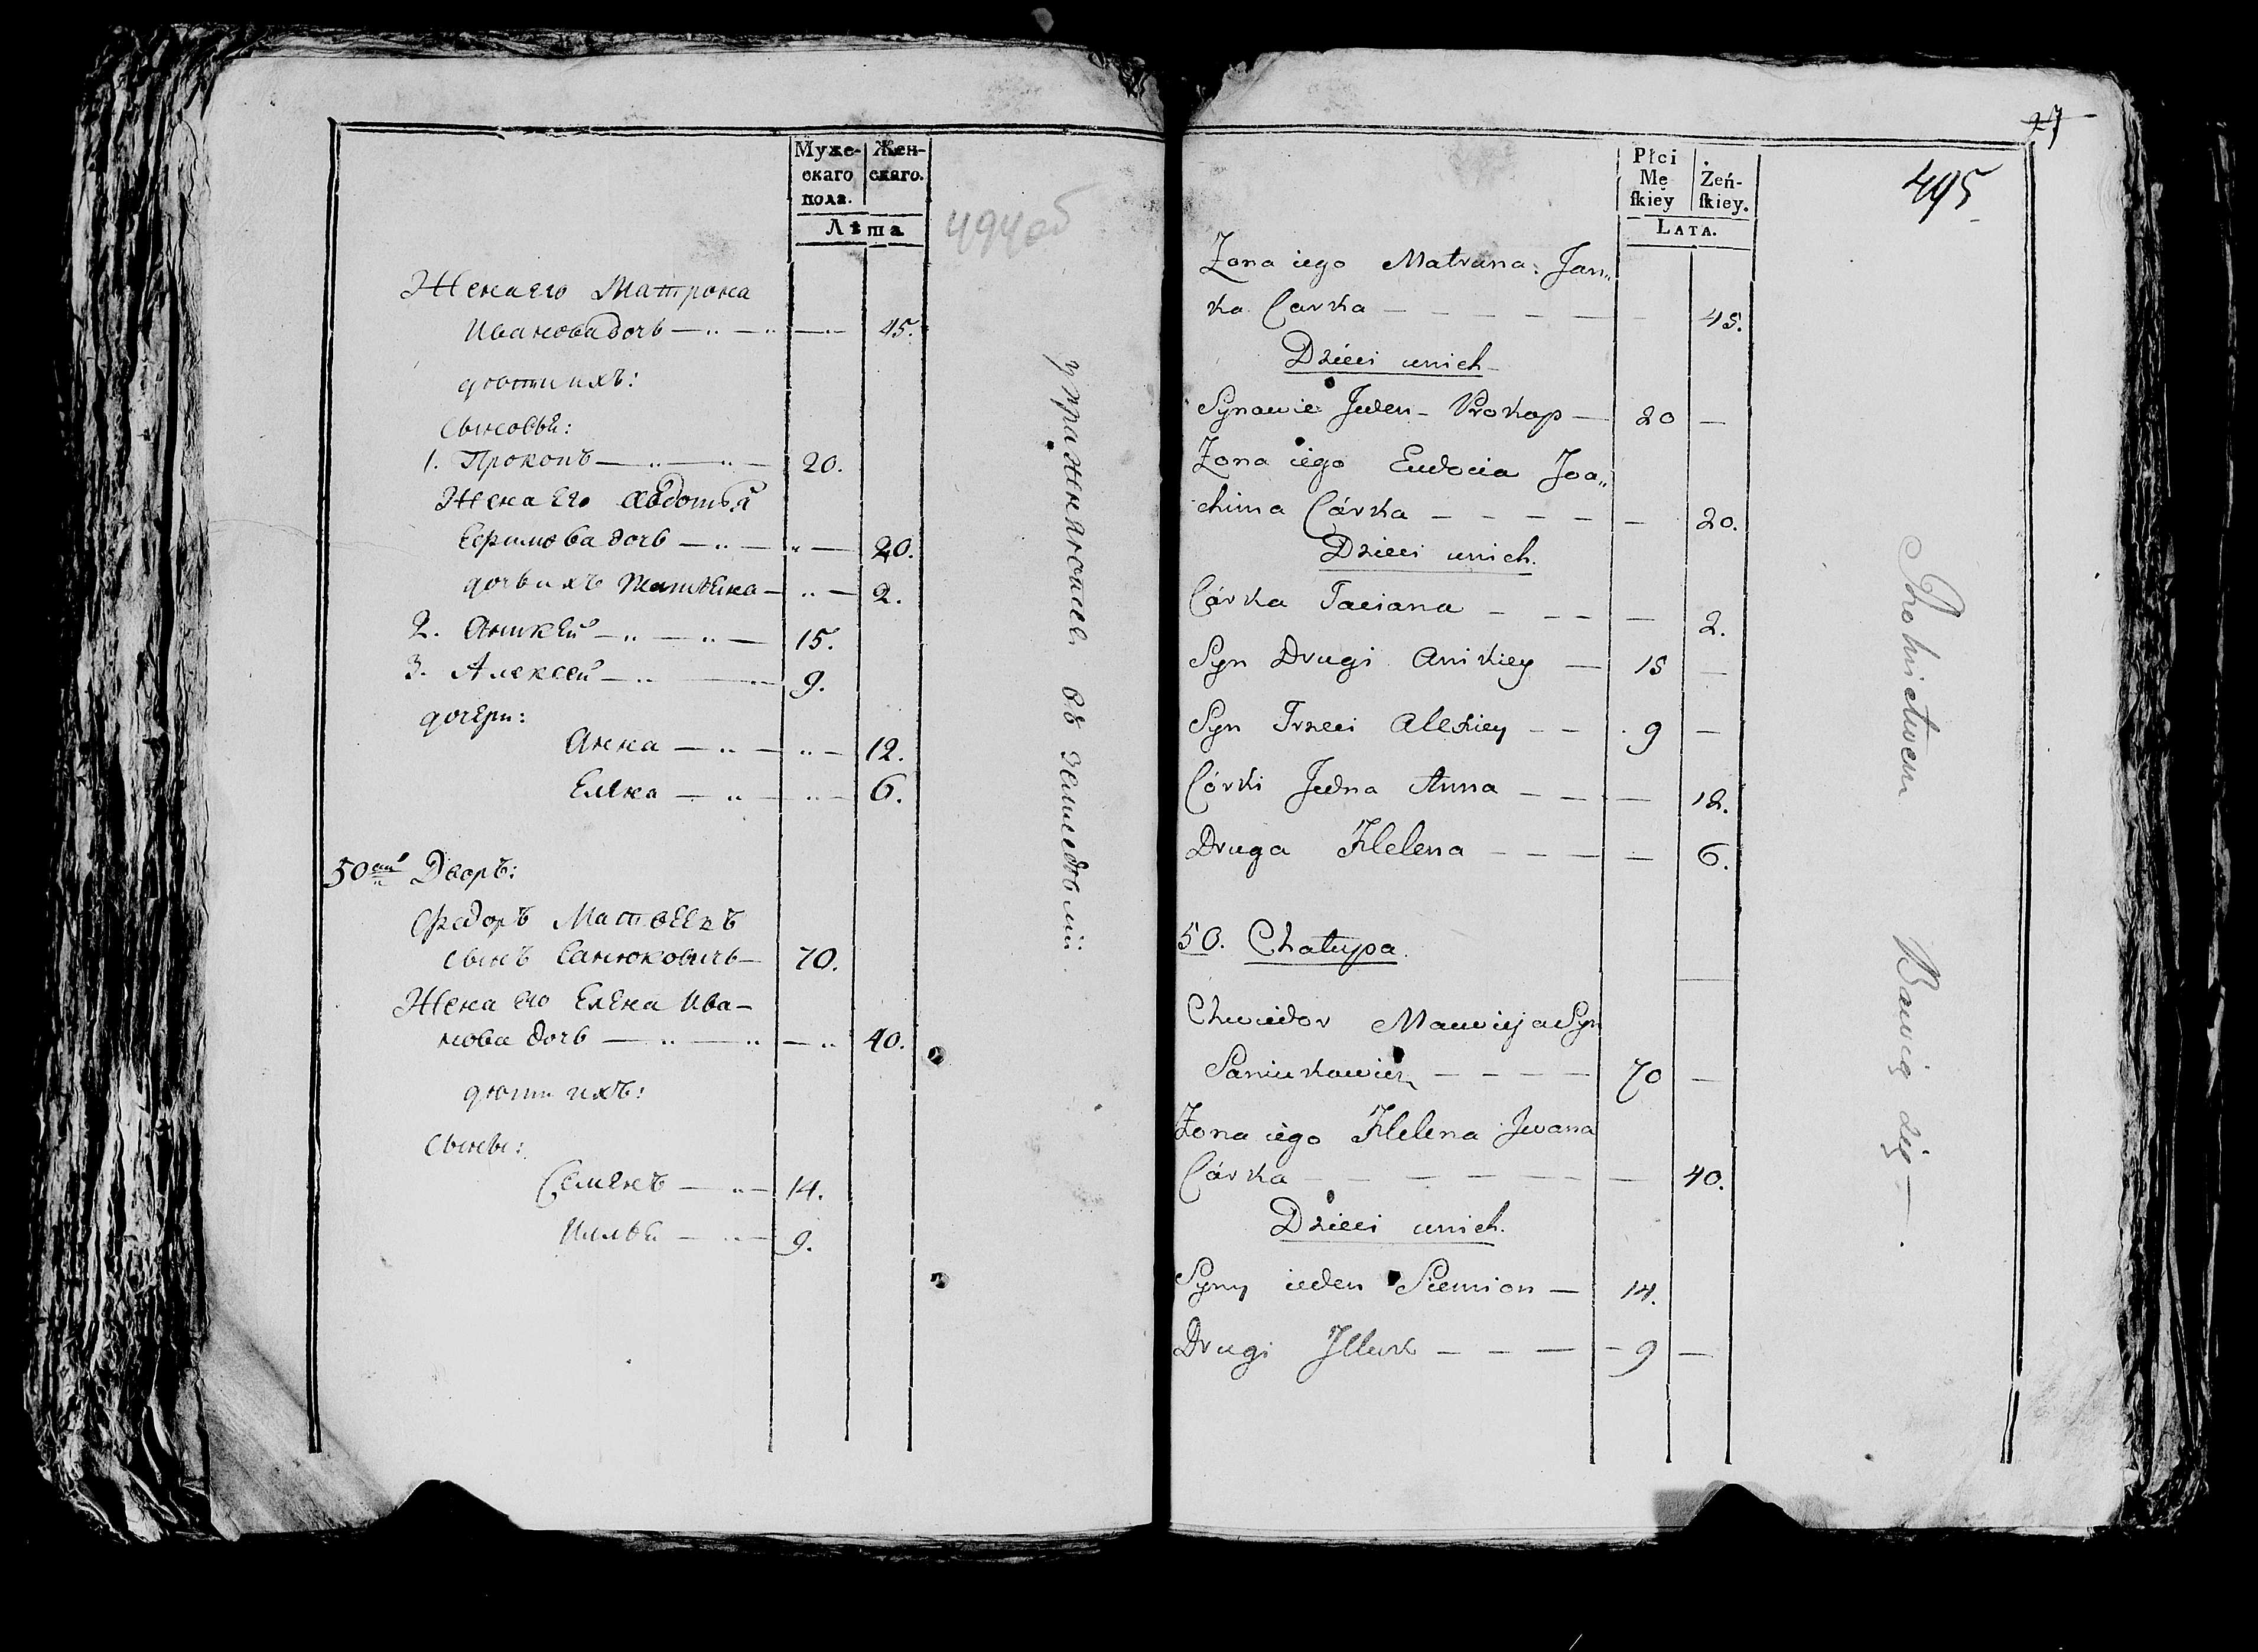 Муже- Жен-
скаго скаго.
пола.
Лѣта
494об
Жена его Матрона
Иванова дочь — " — " — " 45.
дѣти ихъ:
сыновьи:
1. Прокопъ — " — " — 20.
Жена Его Авдотья
Ефимова дочь — " — " — 20.
дочь ихъ Татьяна — " — 2.
2. Аникей — " — " — 15.
3. Алексей — " — " 9.
дочери:
Анна — " — " — 12.
Елена — " — " — 6.
50ый Дворъ:
Федоръ Матвеевъ
сынъ Санюковичь — 70.
Жена его Елена Ива-
нова дочь — " — " — " 40.
дѣти ихъ:
сыны:
Семенъ — " — 14.
Илья — " — 9.
упражняются въ земледѣліи.
27
495
Płci
Mę Żeń-
skiey skiey.
LATA.
Zona iego Matrana Jan„
ka Carka — — — — — — 45.
Dzieci unich
Synowie Jeden Prokop — 20 —
Zona iego Eudocia Joa„
chima Córka — — — — — 20.
Dzieci unich.
Córka Taciana — — — — 2.
Syn Drugi Anikiey — 15 —
Syn Trzeci Alexiey — — 9 —
Córki Jedna Anna — — — 12.
Druga Helena — — — — 6.
50. Chałupa.
Chwiedor Mawieja Syn
Saniukowicz — — — — 70 —
Zona iego Helena Jwana
Córka — — — — — — 40.
Dzieci unich.
Syny ieden Siemion — 14.
Drugi Jlluk — — — 9 —
Rolnictwem Bawią się —